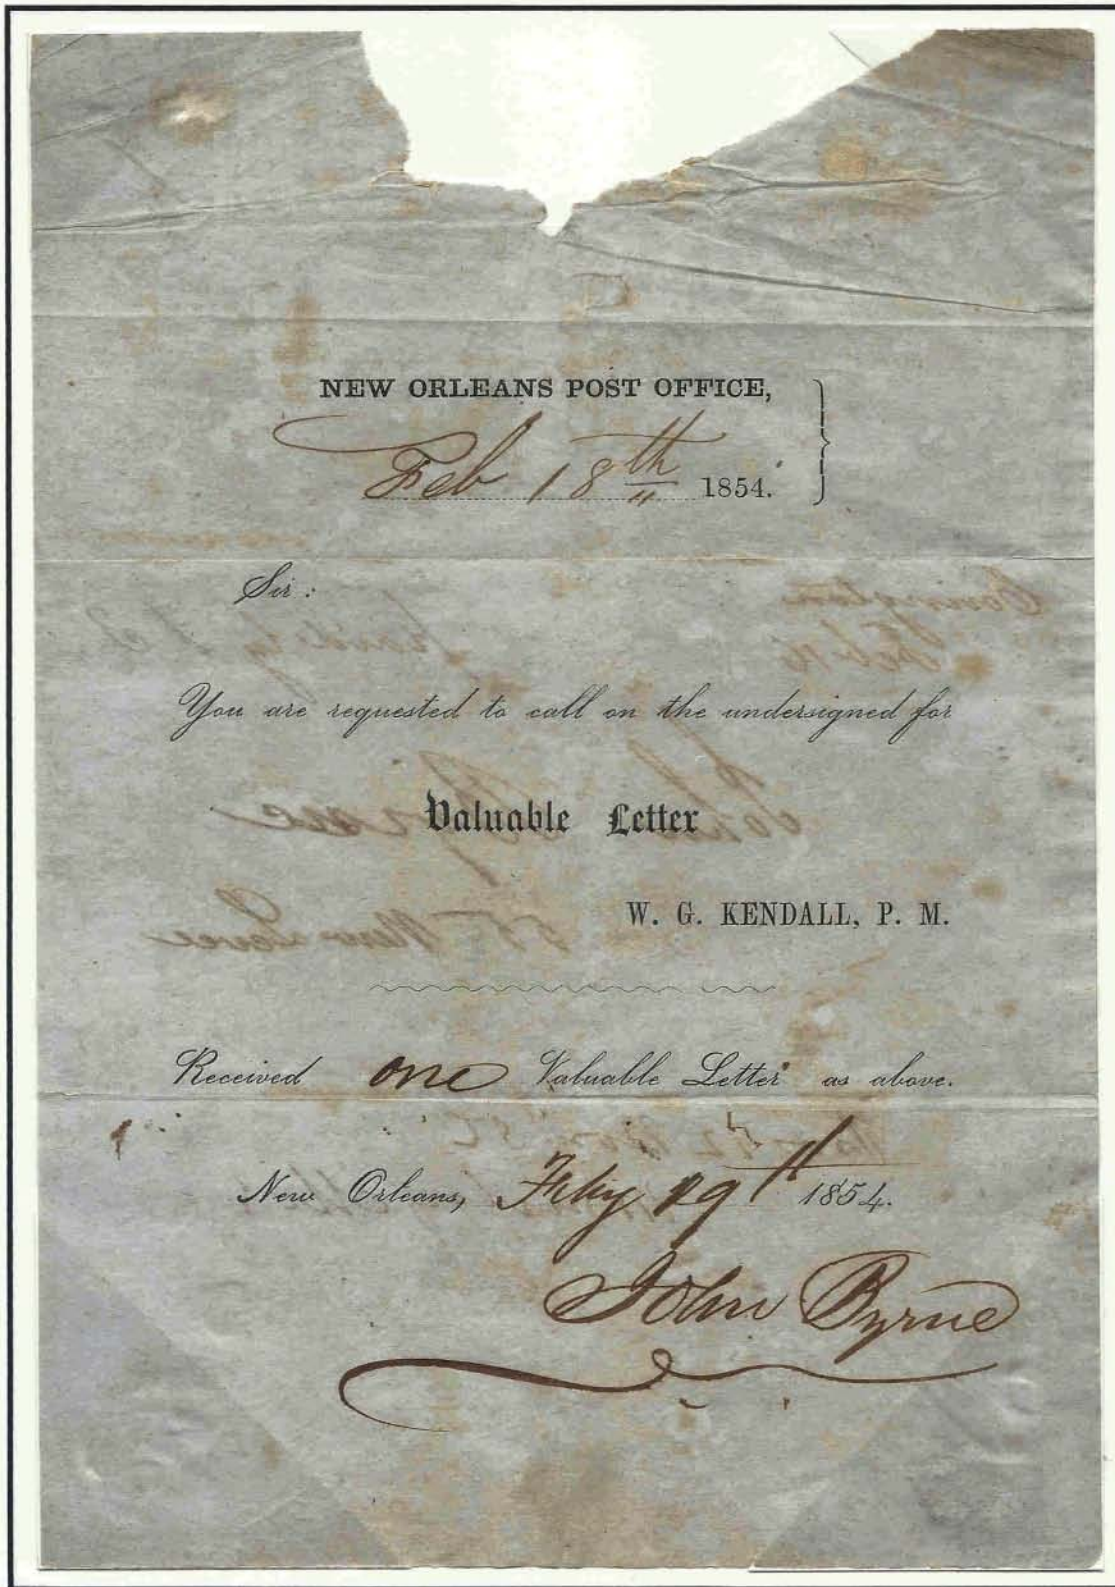 NEW ORLEANS POST OFFICE,
Feb 18th 1854.
Sir:
You are requested to call on the undersigned for
Valuable Letter
W. G. KENDALL, P. M.
Received one Valuable Letter as above.
New Orleans, Feby 19th 1854.
John Byrne